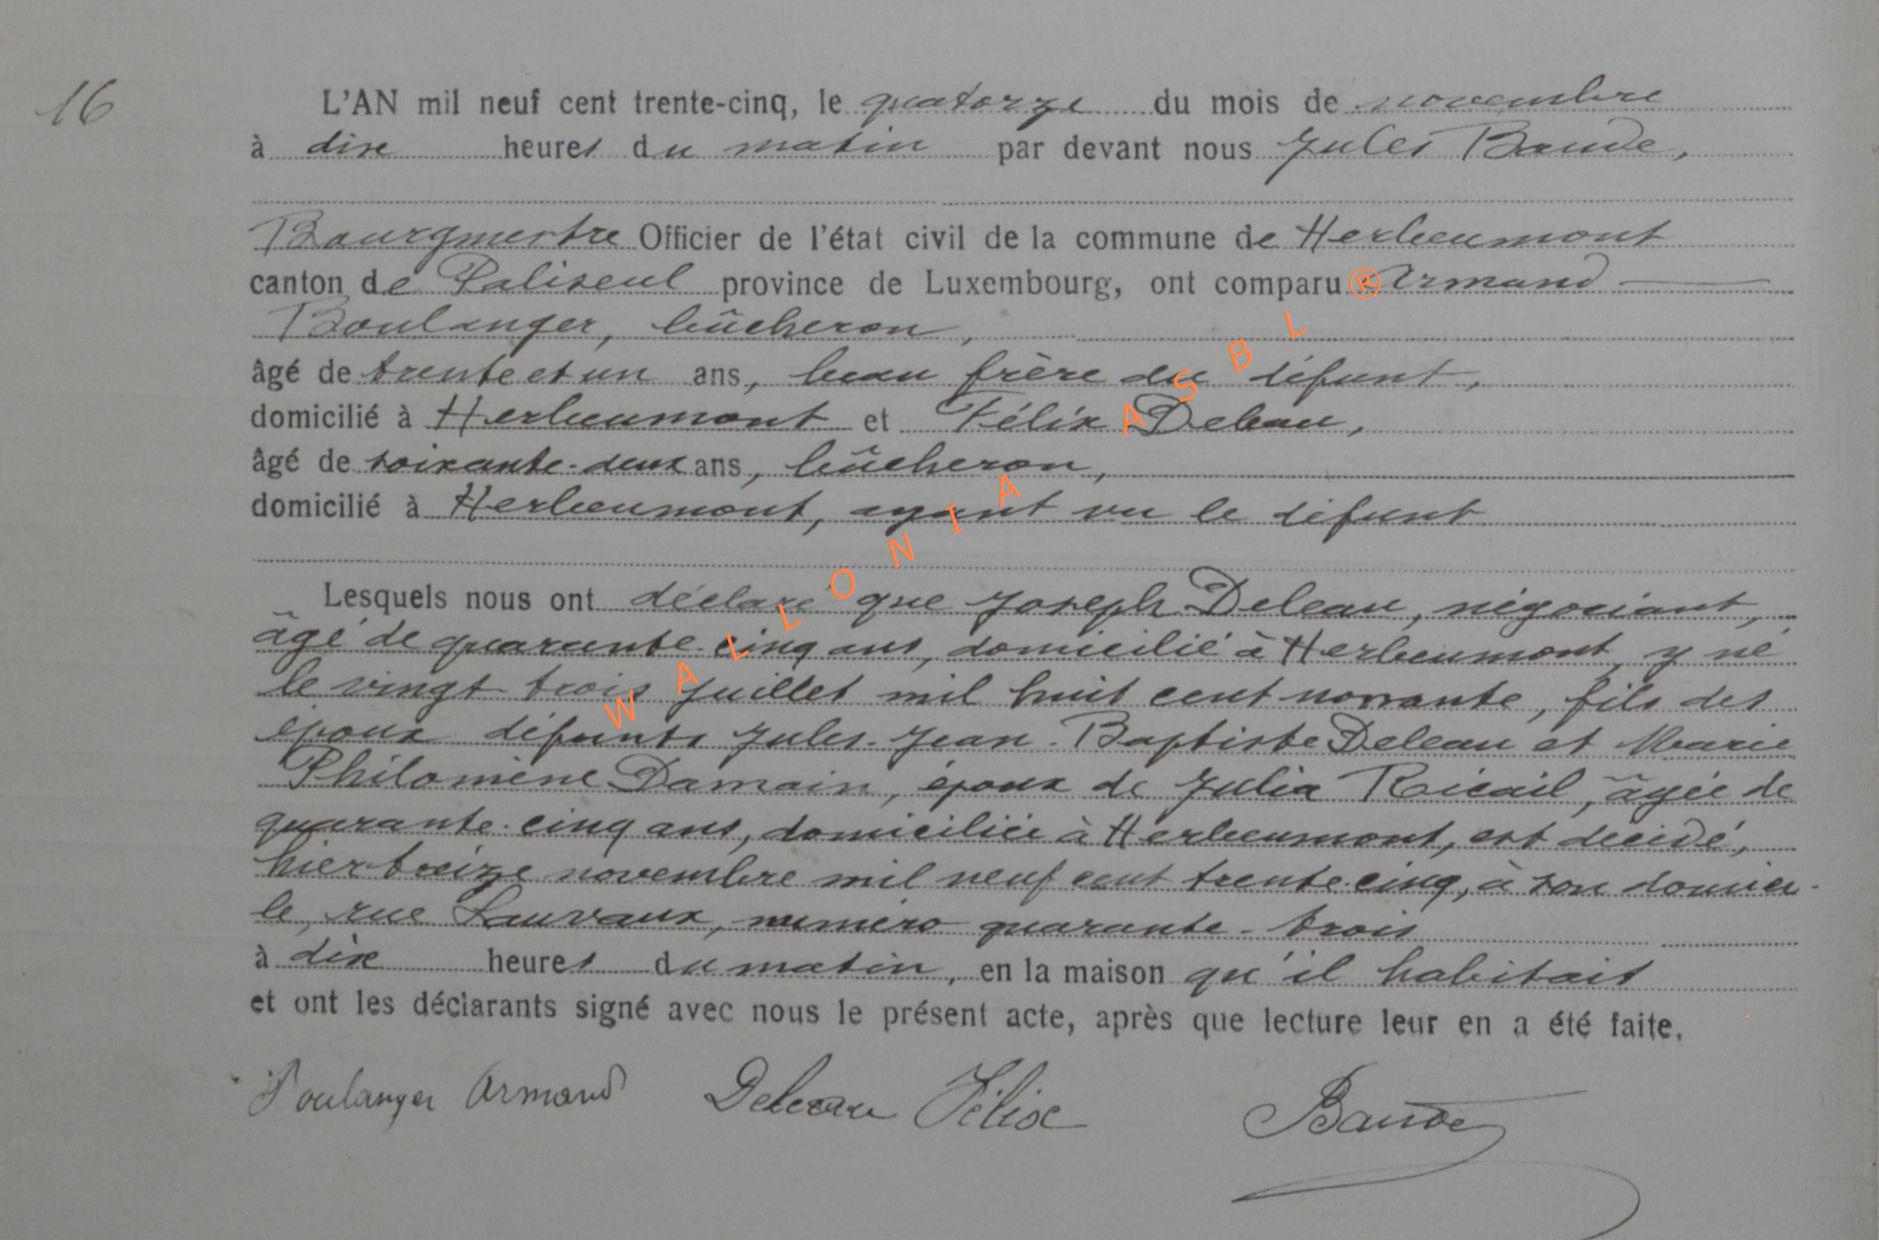 16
L'AN mil neuf cent trente-cinq, le quatorze du mois de novembre
à dix heures du matin par devant nous Jules Baude,
Bourgmestre Officier de l'état civil de la commune de Herbeumont
canton de Paliseul province de Luxembourg, ont comparu Armand
Boulanger, bûcheron,
âgé de trente et un ans, beau frère du défunt,
domicilié à Herbeumont et Félix Deleau,
âgé de soixante-deux ans, bûcheron,
domicilié à Herbeumont, ayant vu le défunt
Lesquels nous ont déclaré que Joseph Deleau, négociant,
âgé de quarante-cinq ans, domicilié à Herbeumont, y né
le vingt trois juillet mil huit cent nonante, fils des
époux défunts Jules-Jean-Baptiste Deleau et Marie
Philomène Damain, époux de Julia Ricail, âgée de
quarante-cinq ans, domiciliée à Herbeumont, est décédé,
hier treize novembre mil neuf cent trente-cinq, à son domici-
le, rue Lauvaux, numéro quarante-trois
à dix heures du matin, en la maison qu'il habitait
et ont les déclarants signé avec nous le présent acte, après que lecture leur en a été faite.
Boulanger Armand Deleau Félix Baude
WALLONIA ASBL ®